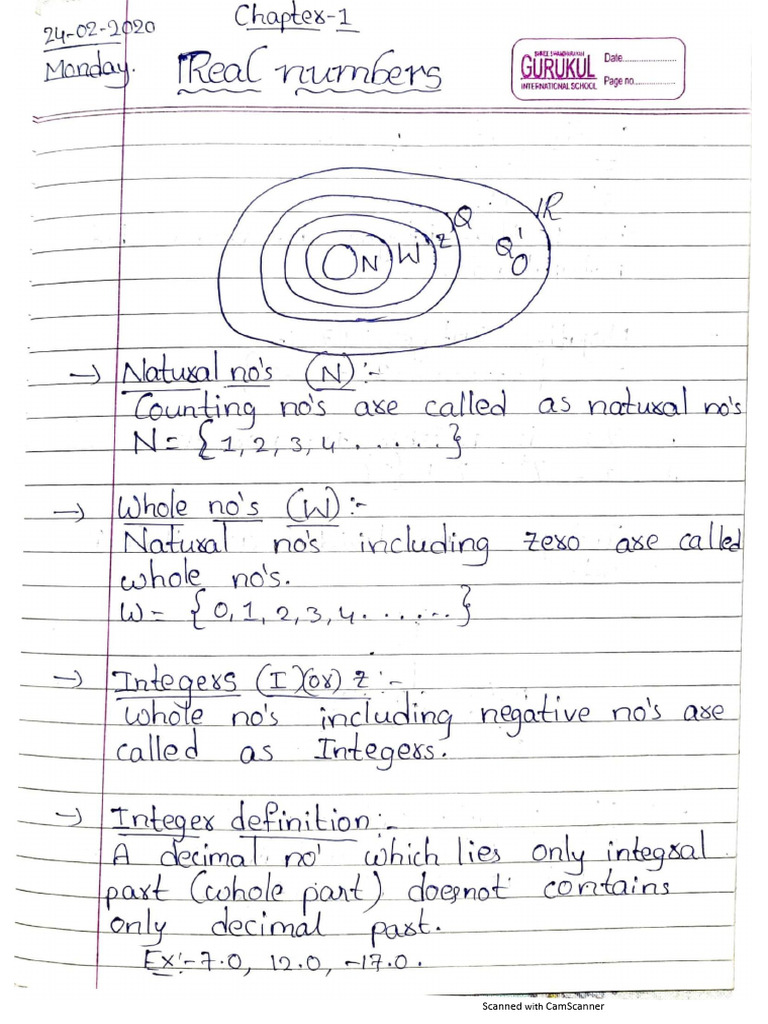 24-02-2020
Chapter-1
Monday.
Real numbers
SHREE SWAMINARAYAN
GURUKUL
INTERNATIONAL SCHOOL
Date
Page no
R
Q
Z
W
N
Q'
→ Natural no's (N):-
Counting no's are called as natural no's
N = {1, 2, 3, 4 . . . . . .}
→ Whole no's (W):-
Natural no's including zero are called
whole no's.
W = {0, 1, 2, 3, 4 . . . . . .}
→ Integers (I)(or) Z:-
Whole no's including negative no's are
called as Integers.
→ Integer definition:-
A decimal no' which lies only integral
part (whole part) doesnot contains
only decimal part.
Ex:- 7.0, 12.0, -17.0.
Scanned with CamScanner